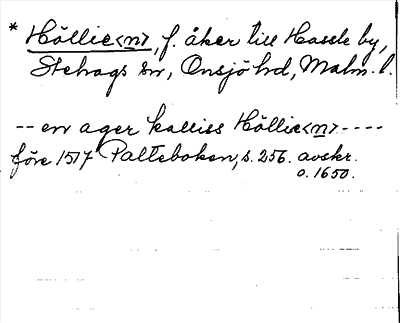 * Höllie<n>, f. åker till Hassle by,
Stehags sn, Onsjö hd, Malm. l.
-- en ager kalliss Höllie<n> ----
före 1517 Palteboken, s. 256. avskr.
o. 1650.